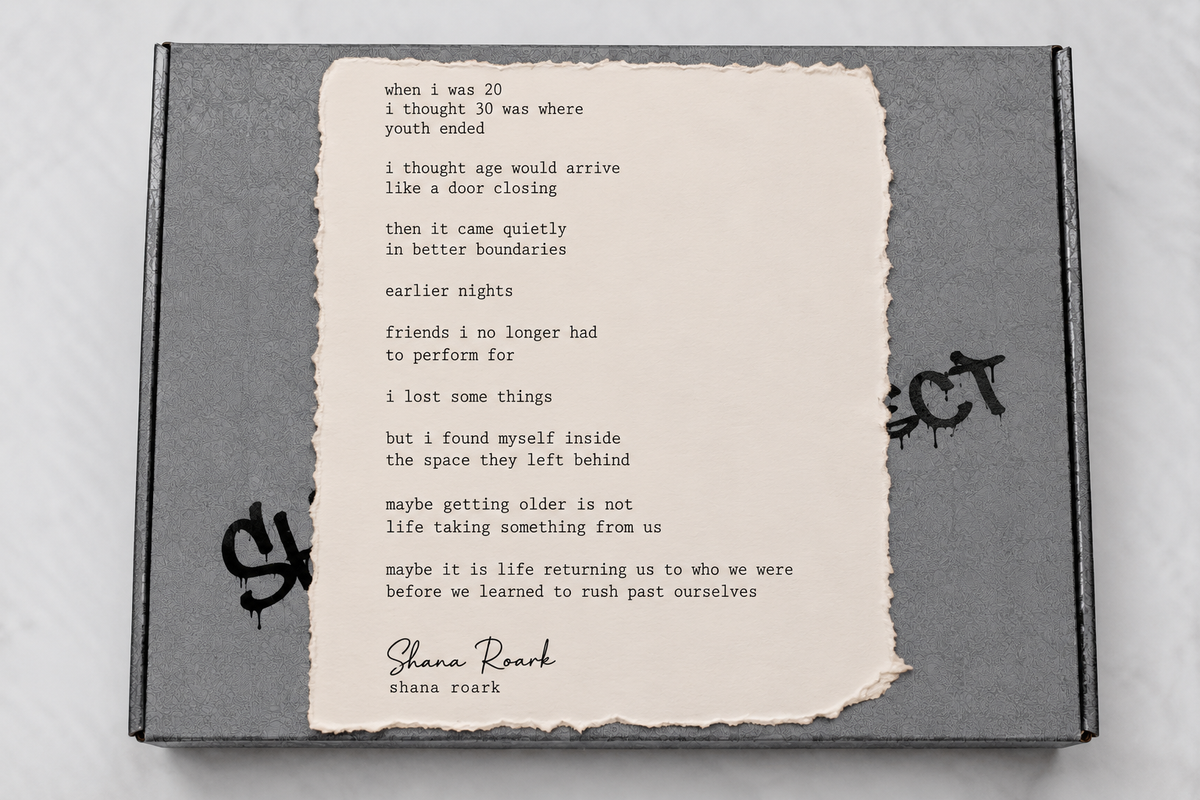 when i was 20
i thought 30 was where
youth ended
i thought age would arrive
like a door closing
then it came quietly
in better boundaries
earlier nights
friends i no longer had
to perform for
i lost some things
but i found myself inside
the space they left behind
maybe getting older is not
life taking something from us
maybe it is life returning us to who we were
before we learned to rush past ourselves
Shana Roark
shana roark